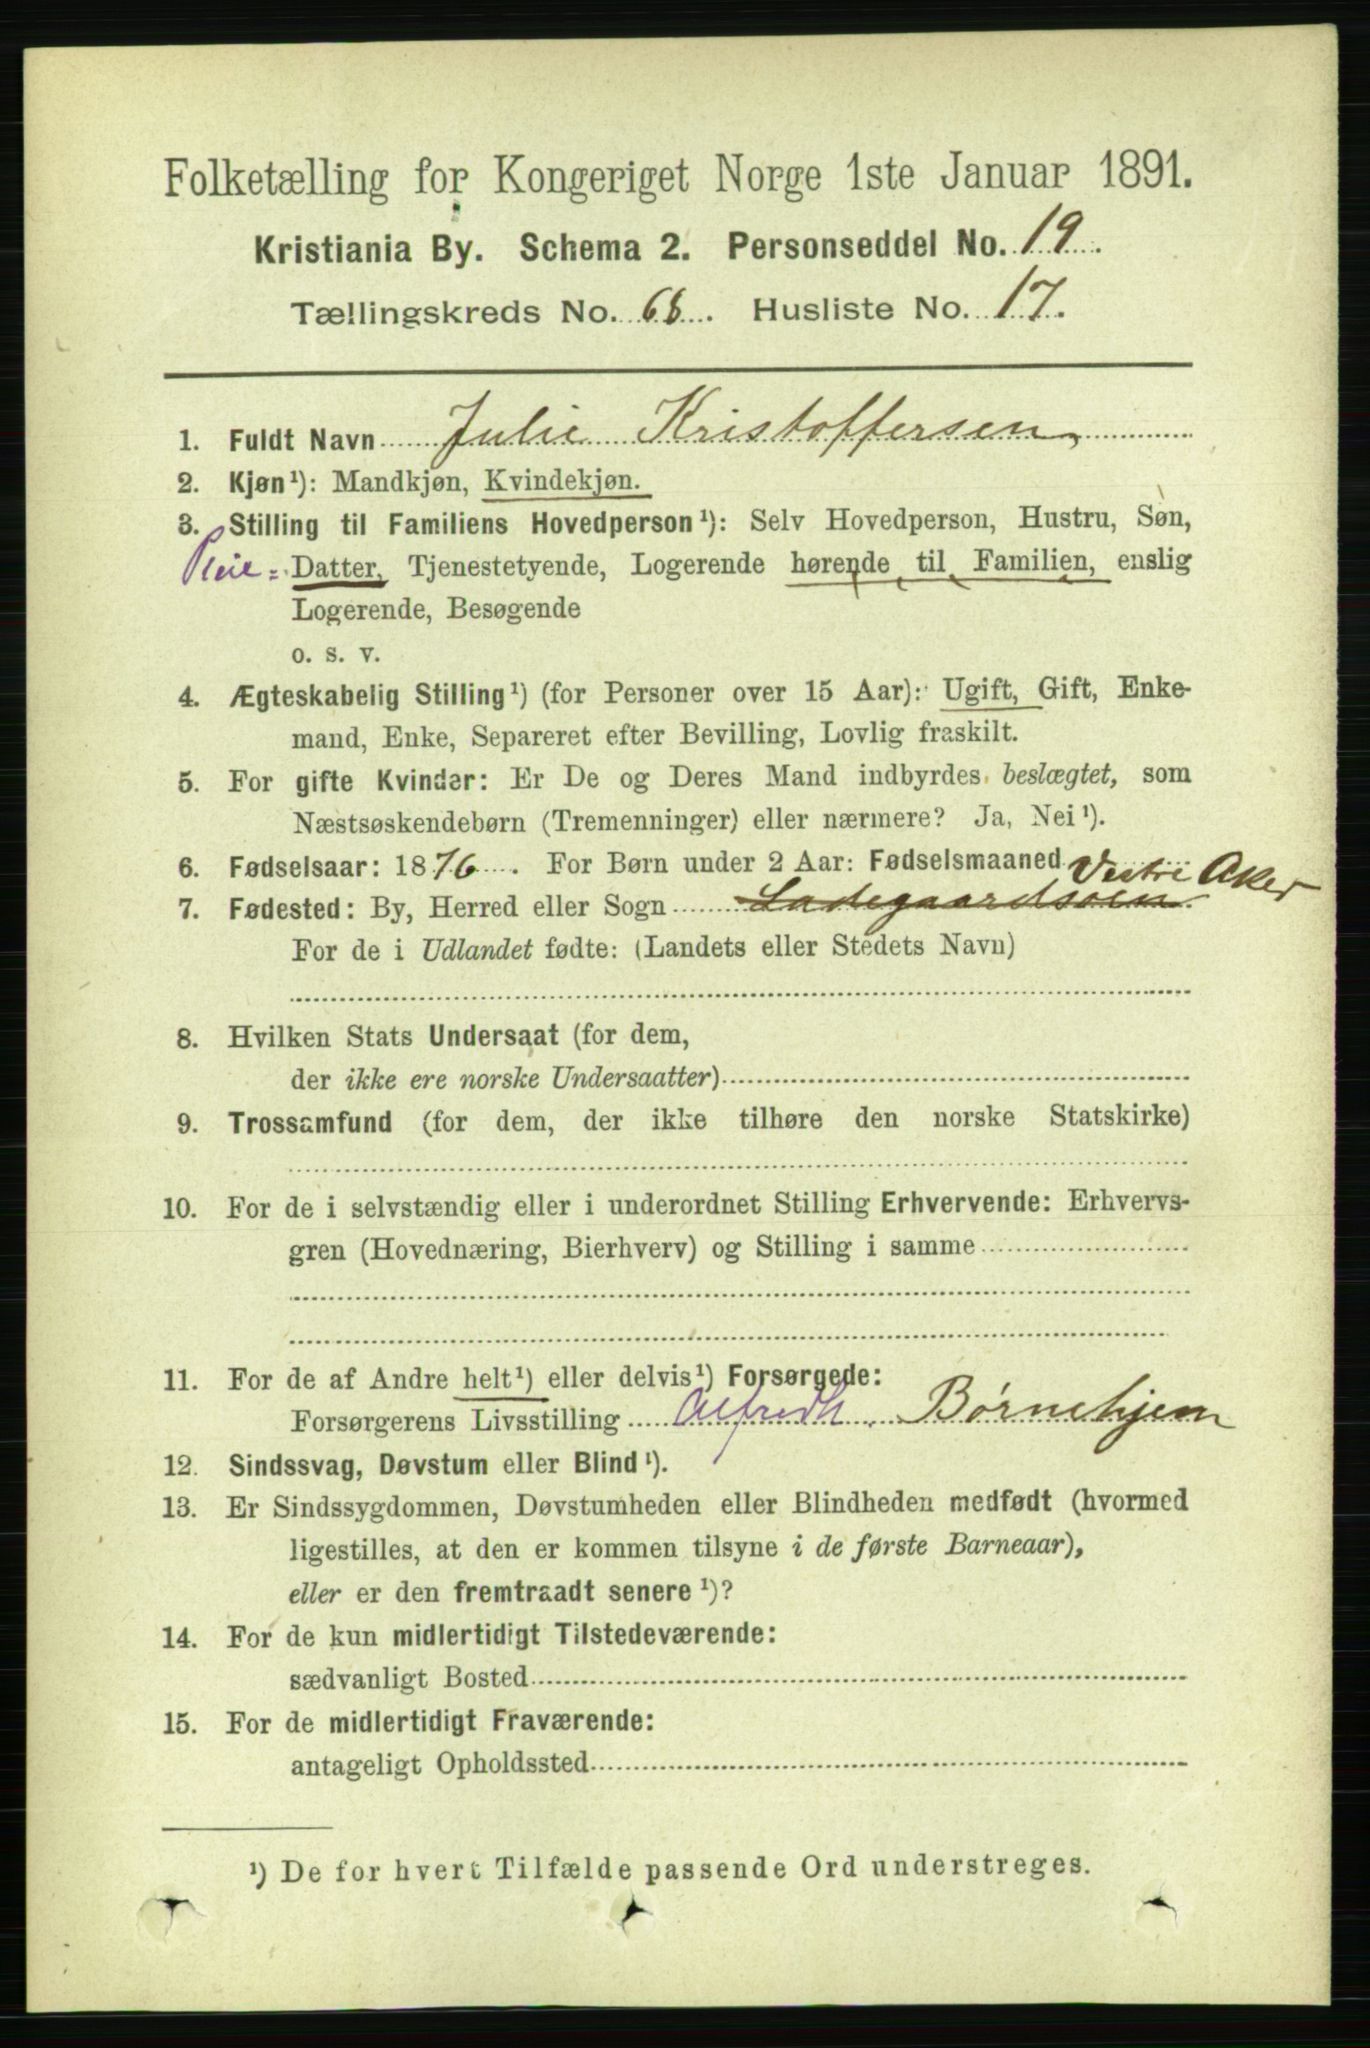 Folketælling for Kongeriget Norge 1ste Januar 1891.
Kristiania By. Schema 2. Personseddel No. 19.
Tællingskreds No. 68. Husliste No. 17.
1. Fuldt Navn Julie Kristoffersen,
2. Kjøn¹): Mandkjøn, Kvindekjøn.
3. Stilling til Familiens Hovedperson¹): Selv Hovedperson, Hustru, Søn,
Pleie- Datter, Tjenestetyende, Logerende hørende til Familien, enslig
Logerende, Besøgende
o. s. v.
4. Ægteskabelig Stilling¹) (for Personer over 15 Aar): Ugift, Gift, Enke-
mand, Enke, Separeret efter Bevilling, Lovlig fraskilt.
5. For gifte Kvinder: Er De og Deres Mand indbyrdes beslægtet, som
Næstsøskendebørn (Tremenninger) eller nærmere? Ja, Nei¹).
6. Fødselsaar: 1876. For Børn under 2 Aar: Fødselsmaaned
Vestre Aker
7. Fødested: By, Herred eller Sogn Ladegaardsøen.
For de i Udlandet fødte: (Landets eller Stedets Navn)
8. Hvilken Stats Undersaat (for dem,
der ikke ere norske Undersaatter)
9. Trossamfund (for dem, der ikke tilhøre den norske Statskirke)
10. For de i selvstændig eller i underordnet Stilling Erhvervende: Erhvervs-
gren (Hovednæring, Bierhverv) og Stilling i samme
11. For de af Andre helt¹) eller delvis¹) Forsørgede:
Forsørgerens Livsstilling Alfredh. Børnehjem
12. Sindssvag, Døvstum eller Blind¹).
13. Er Sindssygdommen, Døvstumheden eller Blindheden medfødt (hvormed
ligestilles, at den er kommen tilsyne i de første Barneaar),
eller er den fremtraadt senere¹)?
14. For de kun midlertidigt Tilstedeværende:
sædvanligt Bosted
15. For de midlertidigt Fraværende:
antageligt Opholdssted
¹) De for hvert Tilfælde passende Ord understreges.